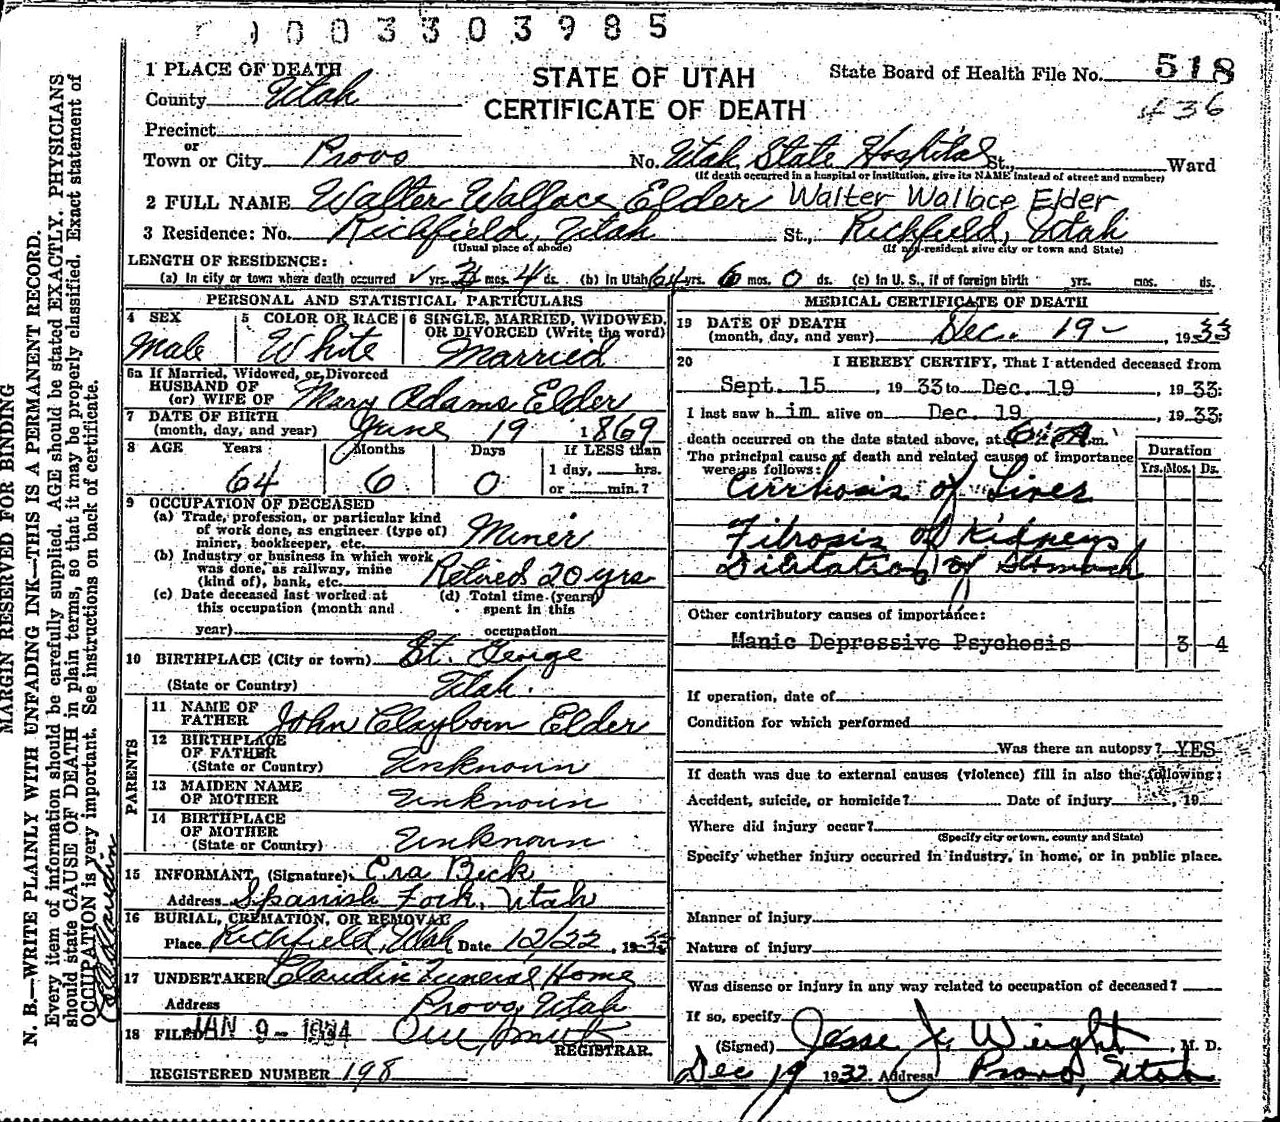 1003303985
STATE OF UTAH
CERTIFICATE OF DEATH
State Board of Health File No. 518
436
1 PLACE OF DEATH
County Utah
Precinct
or
Town or City Provo No. Utah State Hospital St., Ward
(If death occurred in a hospital or institution, give its NAME instead of street and number)
2 FULL NAME Walter Wallace Elder Walter Wallace Elder
3 Residence: No. Richfield, Utah St., Richfield, Utah
(Usual place of abode) (If non-resident give city or town and State)
LENGTH OF RESIDENCE:
(a) In city or town where death occurred yrs. 3 mos. 4 ds. (b) In Utah 64 yrs. 6 mos. 0 ds. (c) In U. S., if of foreign birth yrs. mos. ds.
PERSONAL AND STATISTICAL PARTICULARS
4 SEX 5 COLOR OR RACE 6 SINGLE, MARRIED, WIDOWED,
OR DIVORCED (Write the word)
Male White Married
6a If Married, Widowed, or Divorced
HUSBAND OF
(or) WIFE OF Mary Adams Elder
7 DATE OF BIRTH
(month, day, and year) June 19 1869
8 AGE Years Months Days If LESS than
1 day, hrs.
64 6 0 or min.?
9 OCCUPATION OF DECEASED
(a) Trade, profession, or particular kind
of work done, as engineer (type of)
miner, bookkeeper, etc. Miner
(b) Industry or business in which work
was done, as railway, mine
(kind of), bank, etc. Retired 20 yrs
(c) Date deceased last worked at (d) Total time (years)
this occupation (month and spent in this
year) occupation
10 BIRTHPLACE (City or town) St. George
(State or Country) Utah.
PARENTS
11 NAME OF
FATHER John Clayborn Elder
12 BIRTHPLACE
OF FATHER
(State or Country) Unknown
13 MAIDEN NAME
OF MOTHER Unknown
14 BIRTHPLACE
OF MOTHER
(State or Country) Unknown
15 INFORMANT (Signature) Era Beck
Address Spanish Fork, Utah
16 BURIAL, CREMATION, OR REMOVAL
Place Richfield, Utah Date 12/22, 1933
17 UNDERTAKER Claudin Funeral Home
Address Provo, Utah
18 FILED JAN 9 - 1934
REGISTRAR.
REGISTERED NUMBER 198
MEDICAL CERTIFICATE OF DEATH
19 DATE OF DEATH
(month, day, and year) Dec. 19 - , 1933
20 I HEREBY CERTIFY, That I attended deceased from
Sept. 15 , 1933 to Dec. 19 , 1933;
I last saw him alive on Dec. 19 , 1933;
death occurred on the date stated above, at A.m.
The principal cause of death and related causes of importance
were as follows:
Duration
Yrs. Mos. Ds.
Cirrhosis of Liver
Fibrosis of Kidneys
Dilatation of Stomach
Other contributory causes of importance:
Manic Depressive Psychosis 3 4
If operation, date of
Condition for which performed
Was there an autopsy? YES
If death was due to external causes (violence) fill in also the following:
Accident, suicide, or homicide? Date of injury , 19
Where did injury occur?
(Specify city or town, county and State)
Specify whether injury occurred in industry, in home, or in public place.
Manner of injury
Nature of injury
Was disease or injury in any way related to occupation of deceased?
If so, specify
(Signed) Jesse J. Weight, M. D.
Dec 19 1933. Address Provo, Utah
MARGIN RESERVED FOR BINDING
N. B.—WRITE PLAINLY WITH UNFADING INK—THIS IS A PERMANENT RECORD.
Every item of information should be carefully supplied. AGE should be stated EXACTLY. PHYSICIANS
should state CAUSE OF DEATH in plain terms, so that it may be properly classified. Exact statement of
OCCUPATION is very important. See instructions on back of certificate.